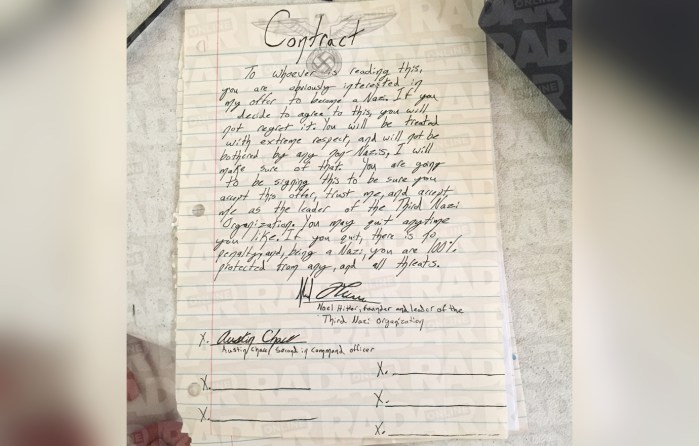 Contract
To whoever is reading this,
you are obviously interested in
my offer to become a Nazi. If you
decide to agree to this, you will
not regret it. You will be treated
with extreme respect, and will not be
bothered by any non-Nazis, I will
make sure of that. You are going
to be signing this to be sure you
accept this offer, trust me, and accept
me as the leader of the Third Nazi
Organization. You may quit anytime
you like. If you quit, there is no
penalty, and, being a Nazi, you are 100%
protected from any, and all threats.
Noel Hitter, founder and leader of the
Third Nazi Organization
X. Austin
Austin /second in command officer
X. X.
X. X.
X.
RADAR ONLINE